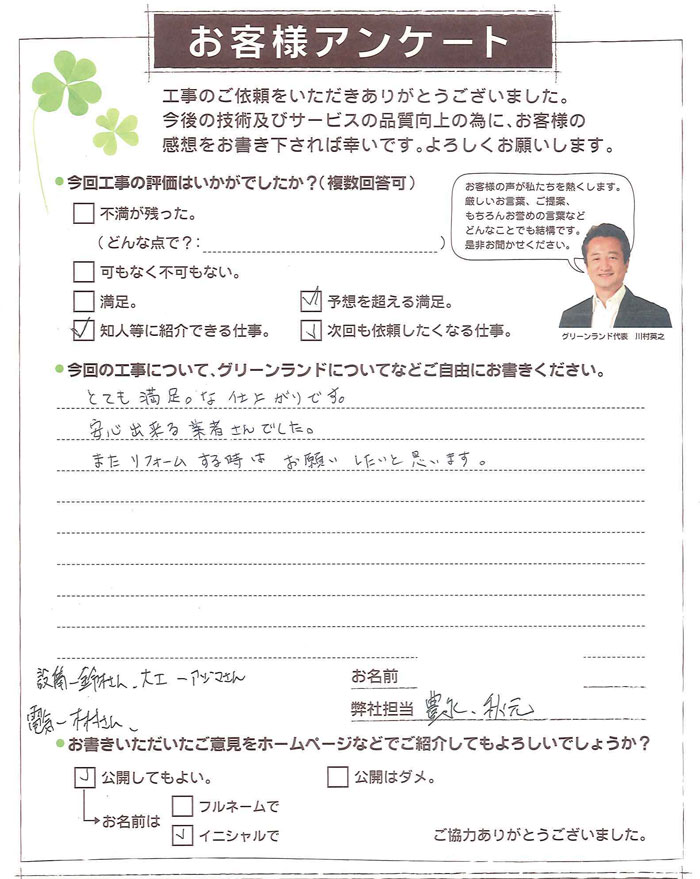 お客様アンケート
工事のご依頼をいただきありがとうございました。
今後の技術及びサービスの品質向上の為に、お客様の
感想をお書き下されば幸いです。よろしくお願いします。
今回工事の評価はいかがでしたか？（複数回答可）
不満が残った。
（どんな点で？：　）
可もなく不可もない。
満足。
予想を超える満足。
知人等に紹介できる仕事。
次回も依頼したくなる仕事。
お客様の声が私たちを熱くします。
厳しいお言葉、ご提案、
もちろんお誉めの言葉など
どんなことでも結構です。
是非お聞かせください。
グリーンランド代表　川村英之
今回の工事について、グリーンランドについてなどご自由にお書きください。
とても 満足。な 仕上がりです。
安心 出来る 業者さんでした。
また リフォーム する時は お願い したいと 思います。
設備－鈴木さん、大工－アヅマさん
電気－木村さん、
お名前
弊社担当 豊水、秋元
お書きいただいたご意見をホームページなどでご紹介してもよろしいでしょうか？
公開してもよい。
公開はダメ。
お名前は
フルネームで
イニシャルで
ご協力ありがとうございました。